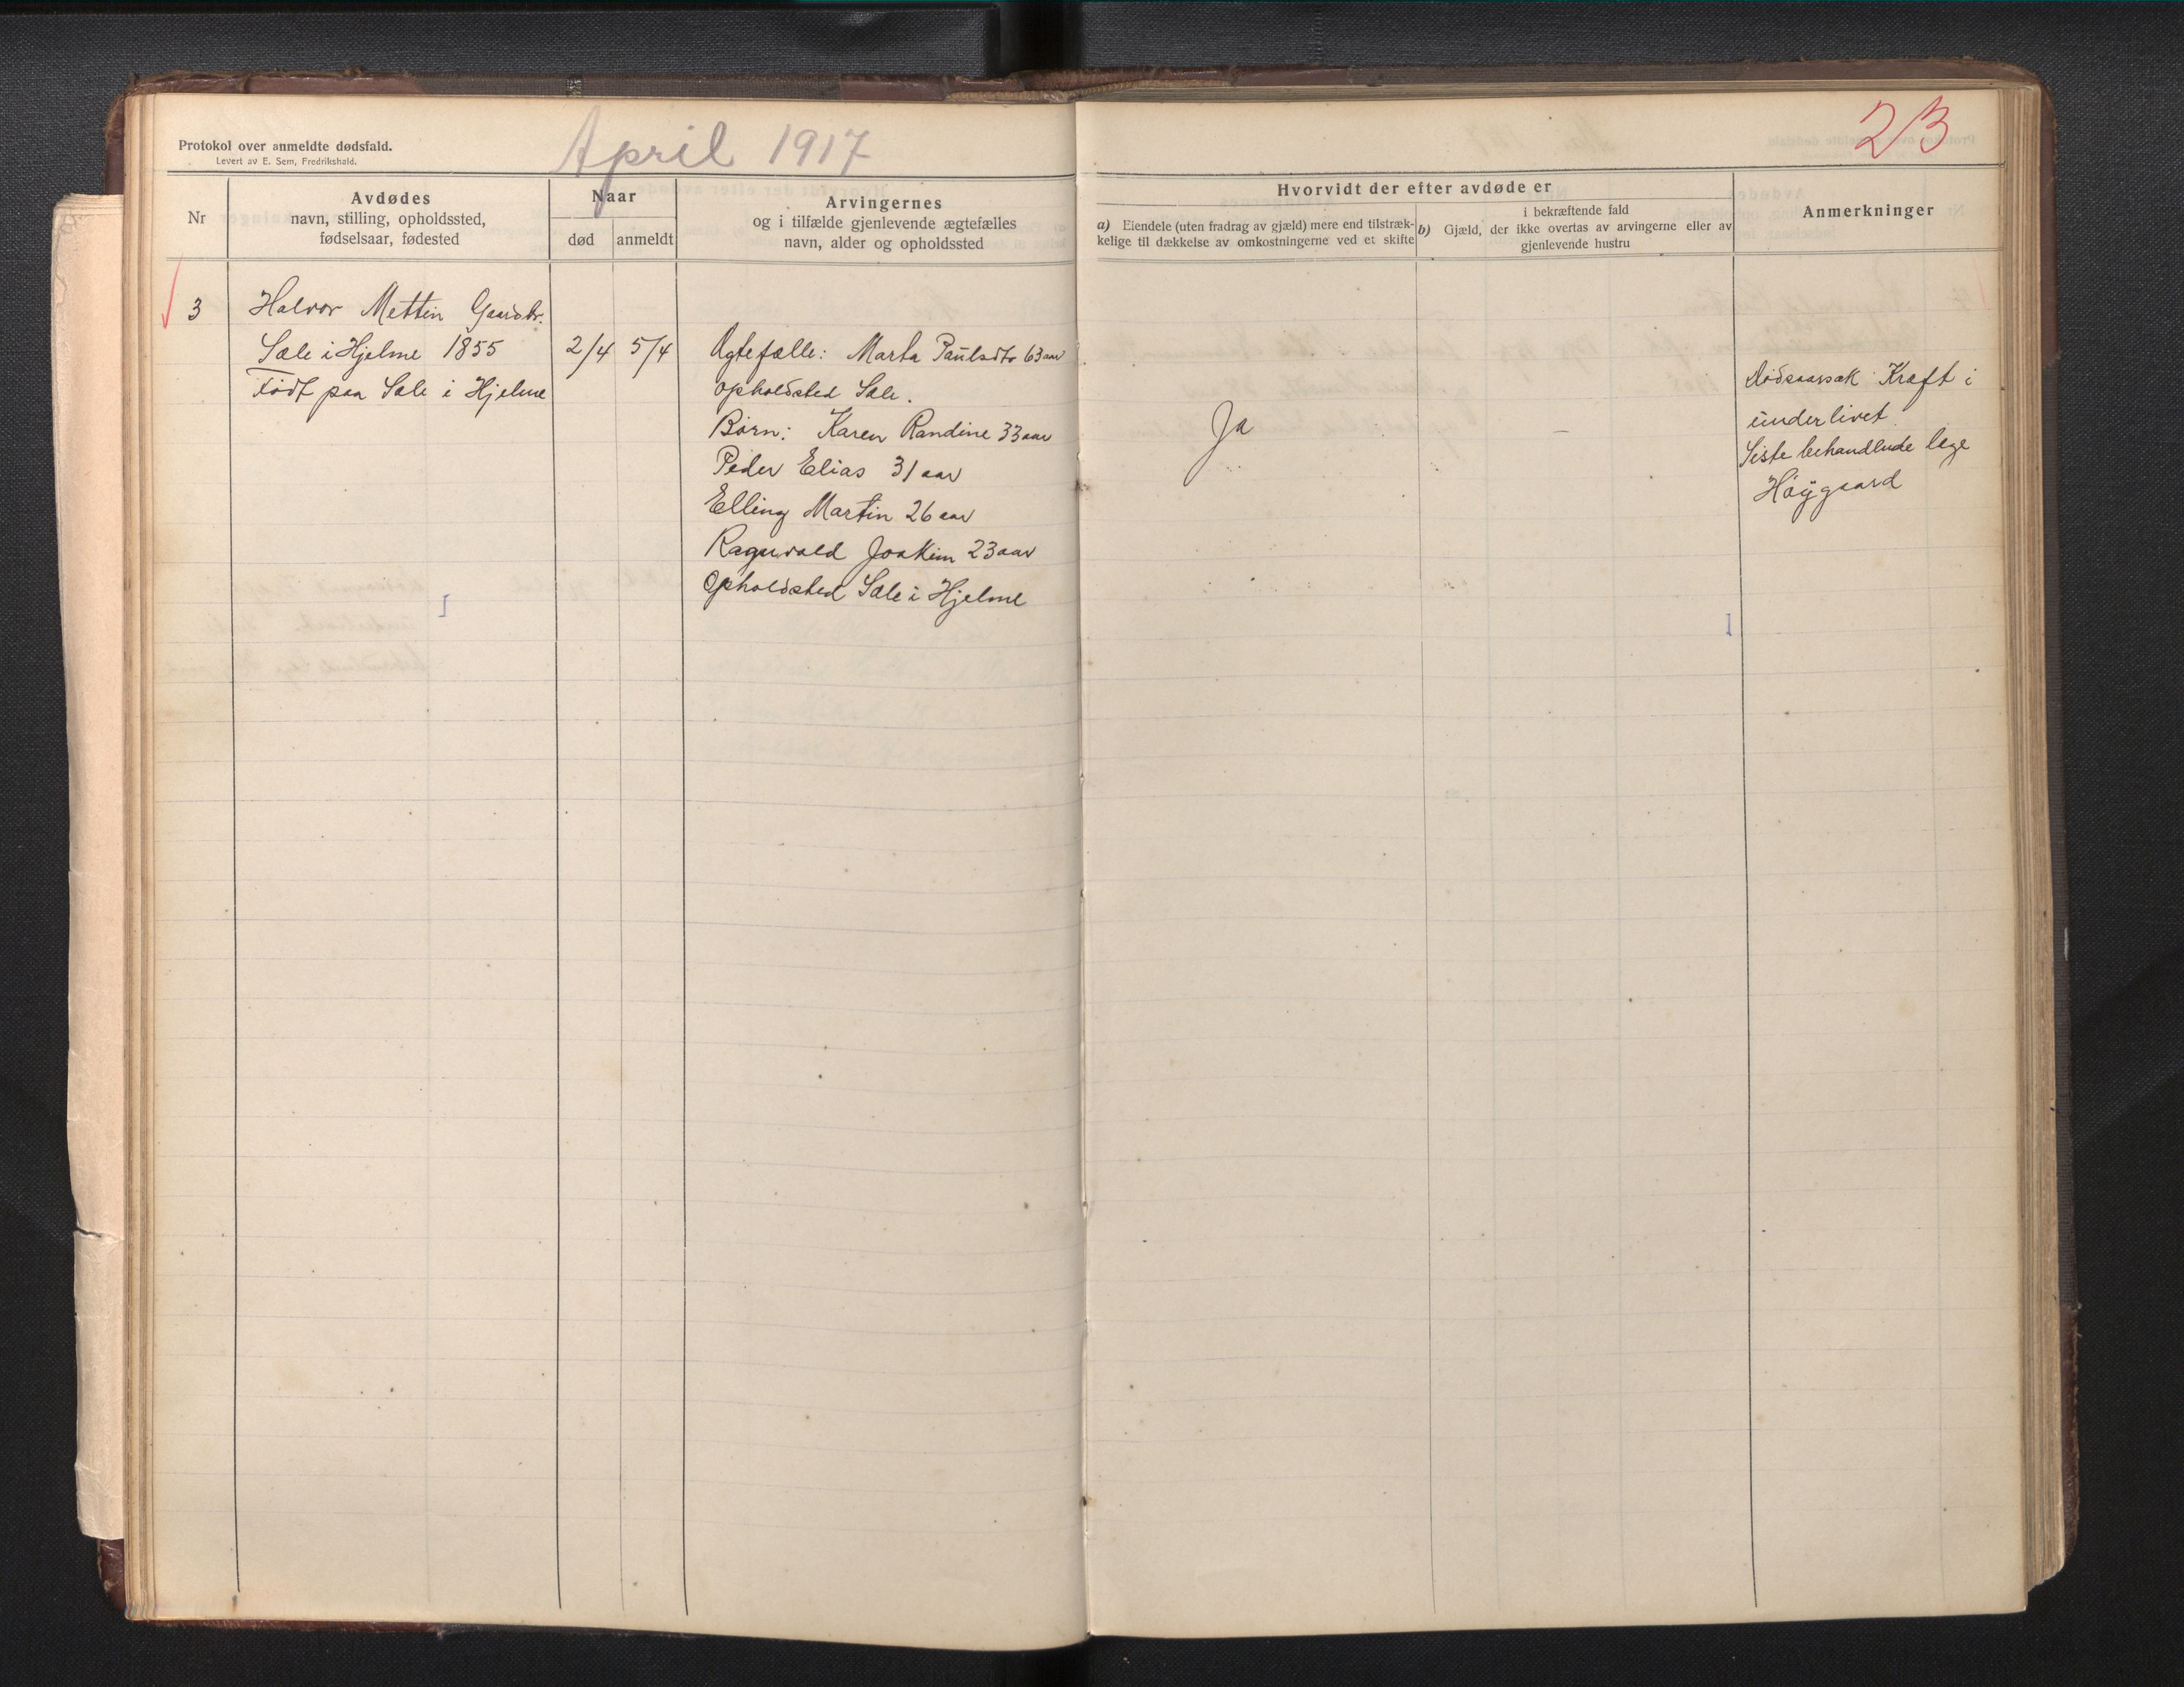 Protokol over anmeldte dødsfald.
Levert av E. Sem, Fredrikshald.
April 1917
Nr
Avdødes
navn, stilling, opholdssted,
fødselsaar, fødested
Naar
død
anmeldt
Arvingernes
og i tilfælde gjenlevende ægtefælles
navn, alder og opholdssted
3
Halvor Mettin Gaardbr.
Sæle i Hjelme 1855
Født paa Sæle i Hjelme
2/4
5/4
Ægtefælle: Marta Paulsdtr 63 aar
opholdsted Sæle.
Børn: Karen Randine 33 aar
Peder Elias 31 aar
Elling Martin 26 aar
Ragnvald Joakim 23 aar
Opholdsted Sæle i Hjelme
23
Hvorvidt der efter avdøde er
a) Eiendele (uten fradrag av gjæld) mere end tilstræk-
kelige til dækkelse av omkostningerne ved et skifte
i bekræftende fald
b) Gjæld, der ikke overtas av arvingerne eller av
gjenlevende hustru
Anmerkninger
Ja
—
Dødsaarsak Kræft i
underlivet.
Siste behandlende læge
Høygaard